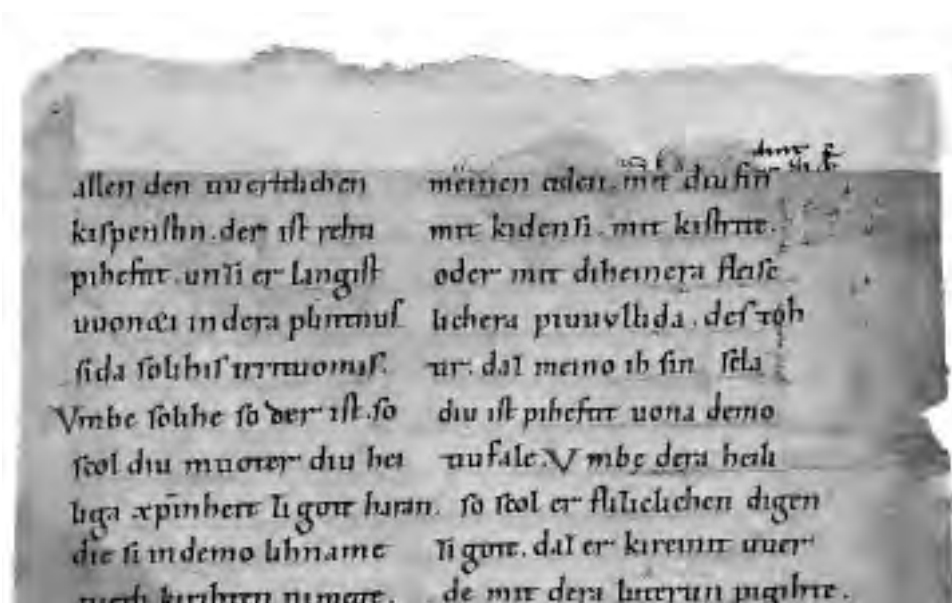 allen den uuertlichen
der ist
piheftit. unzi er langist
uuonet in dera plintnus
sida solihis irrituomis.
Vmbe solihe so der ist. so
scol diu muoter diu hei
liga xp̄inheit zi gote haran.
die si in demo lihname
meinen aden. mit diu sin
mit kidenzi. mit
oder mit diheinera fleisc
lichera piuuollida. des toh
daz meino ih sin sela
diu ist piheftit uona demo
uufale. Vmbe dera heili
so scol er digen
zi gote. daz er kireinit uuer
de mit dera luterun pigihte.